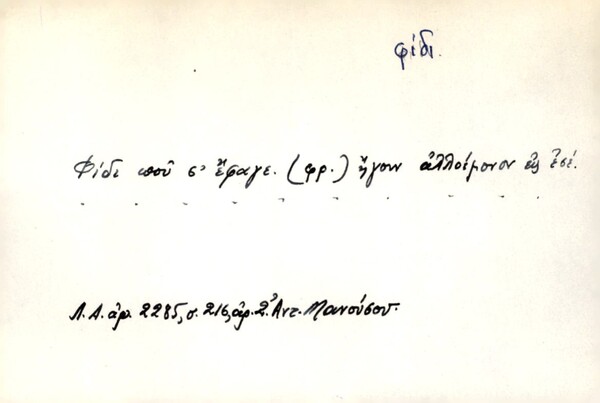 φίδι.
Φίδι ποῦ σ' ἔφαγε. (φρ.) ἤγουν ἀλλοίμονον εἰς ἐσέ.
Λ.Α. ἀρ. 2285, σ. 216, ἀρ. 2. Ἀντ. Μανούσου.